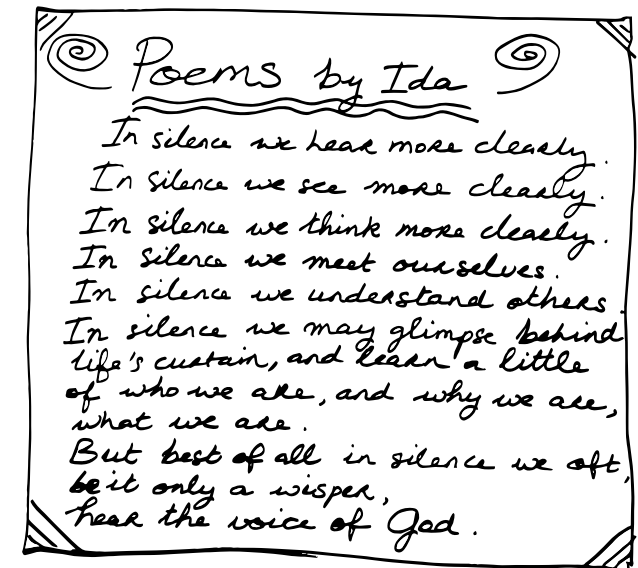 Poems by Ida
In silence we hear more clearly.
In silence we see more clearly.
In silence we think more clearly.
In silence we meet ourselves.
In silence we understand others.
In silence we may glimpse behind
life's curtain, and learn a little
of who we are, and why we are,
what we are.
But best of all in silence we oft,
be it only a wisper,
hear the voice of God.